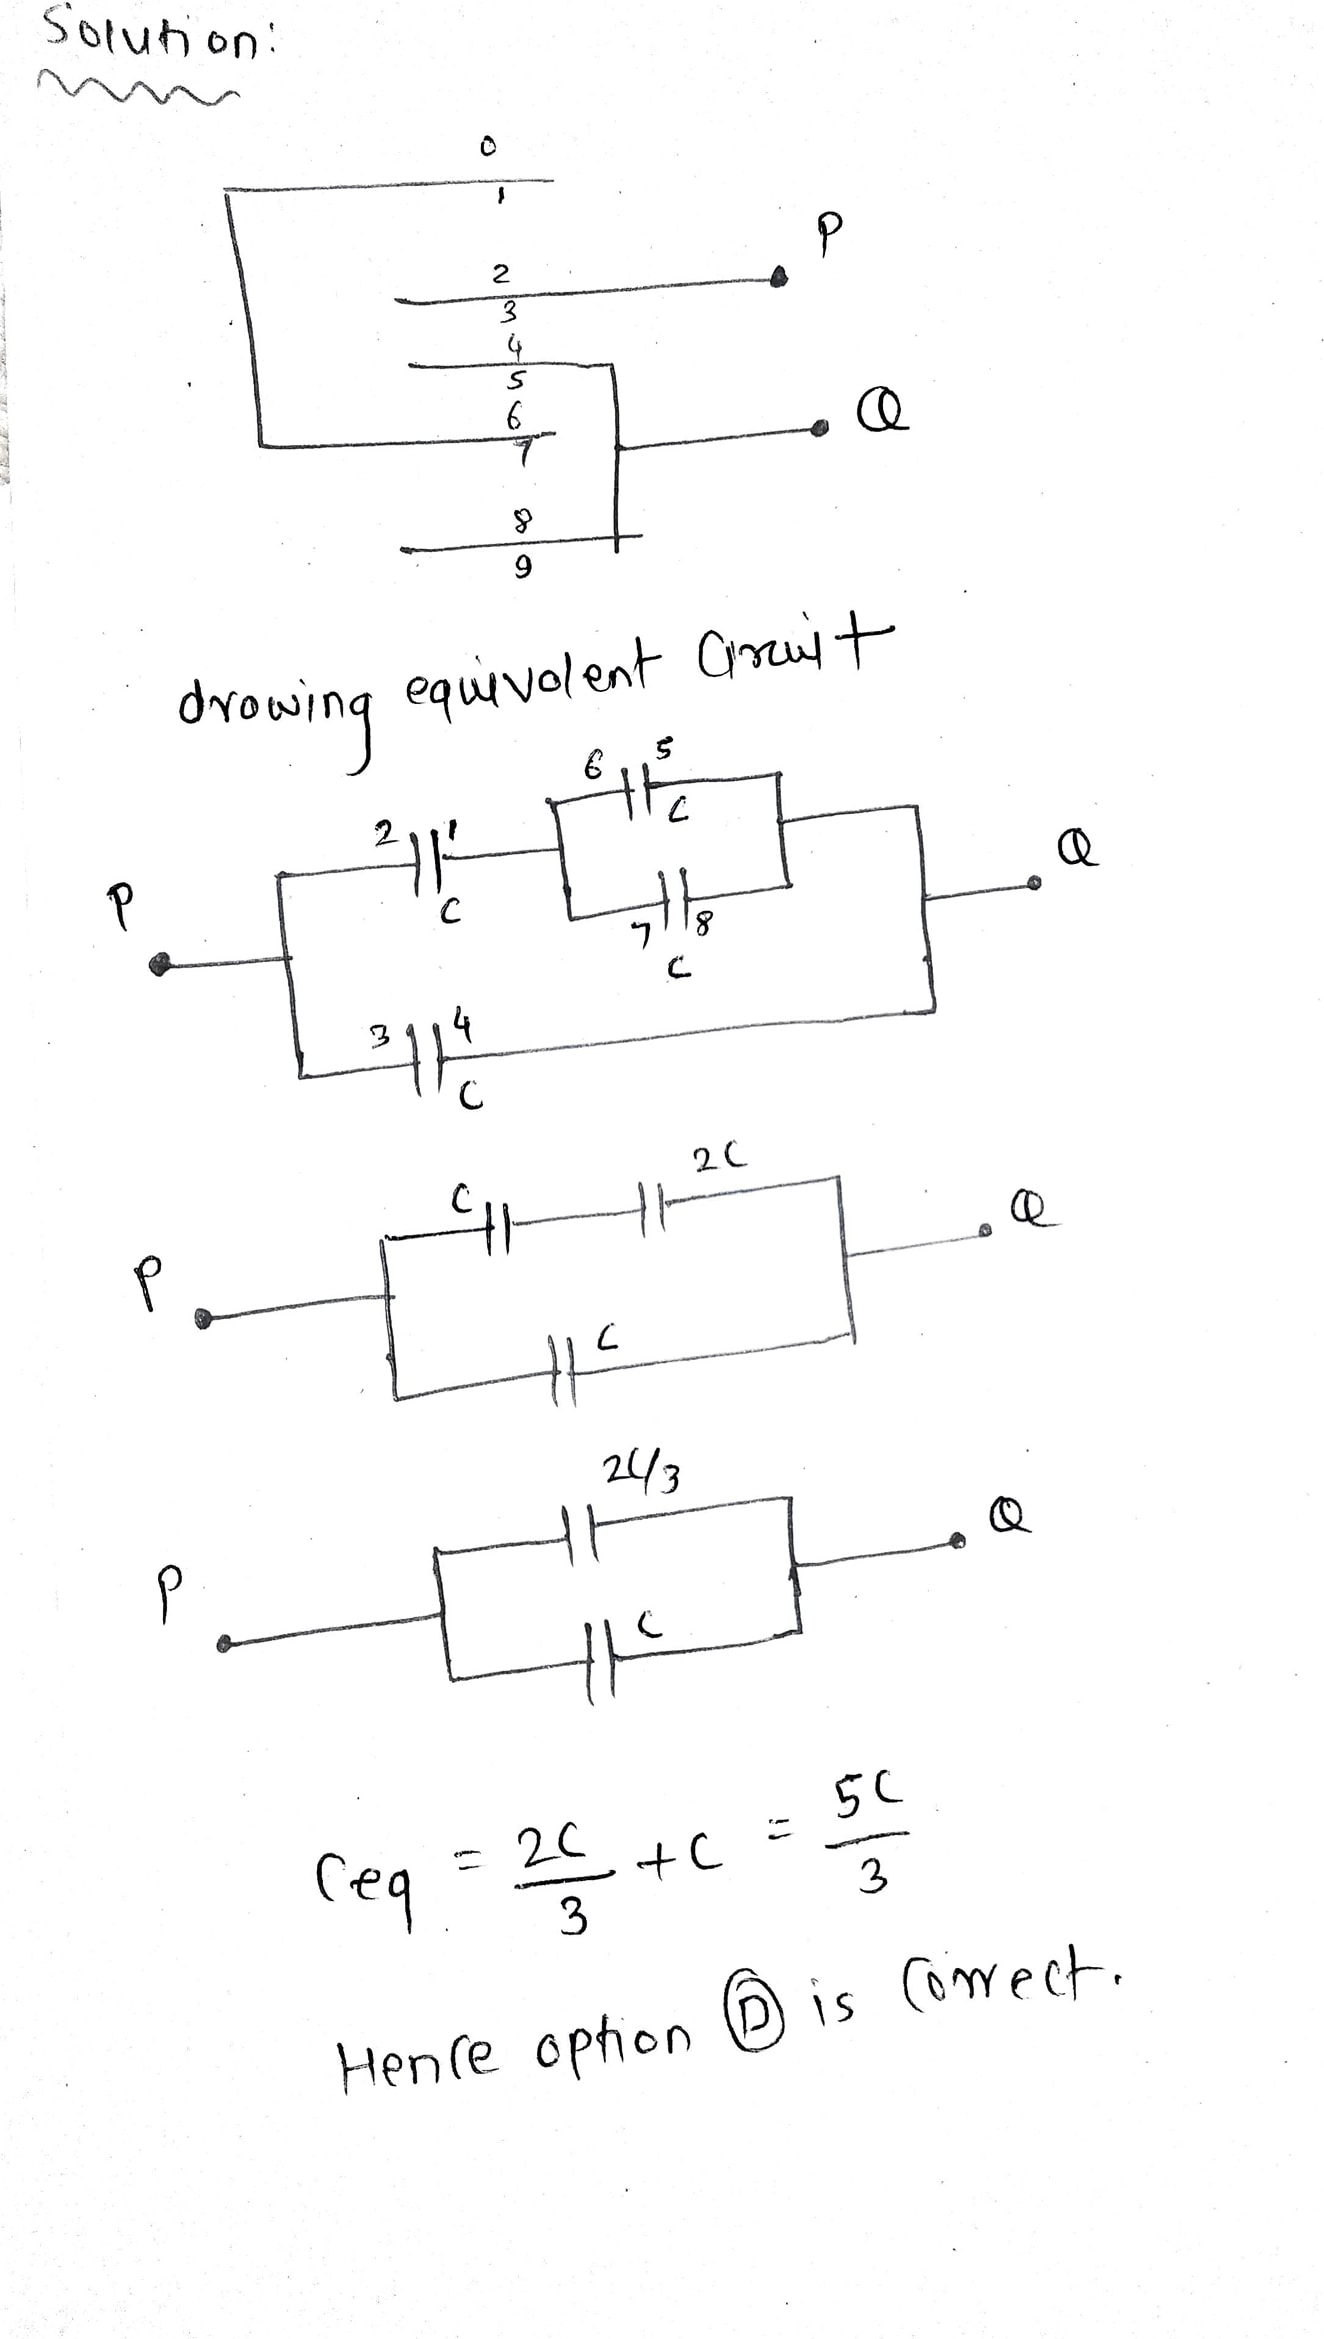 Solution:
0
1
P
2
3
4
5
Q
6
7
8
9
drowing equivolent Circuit
6 5
C
2 1
C
P
Q
7 8
C
3 4
C
2C
C
Q
P
C
2C/3
Q
P
C
Ceq = 2C/3 + C = 5C/3
Hence option D is Correct.